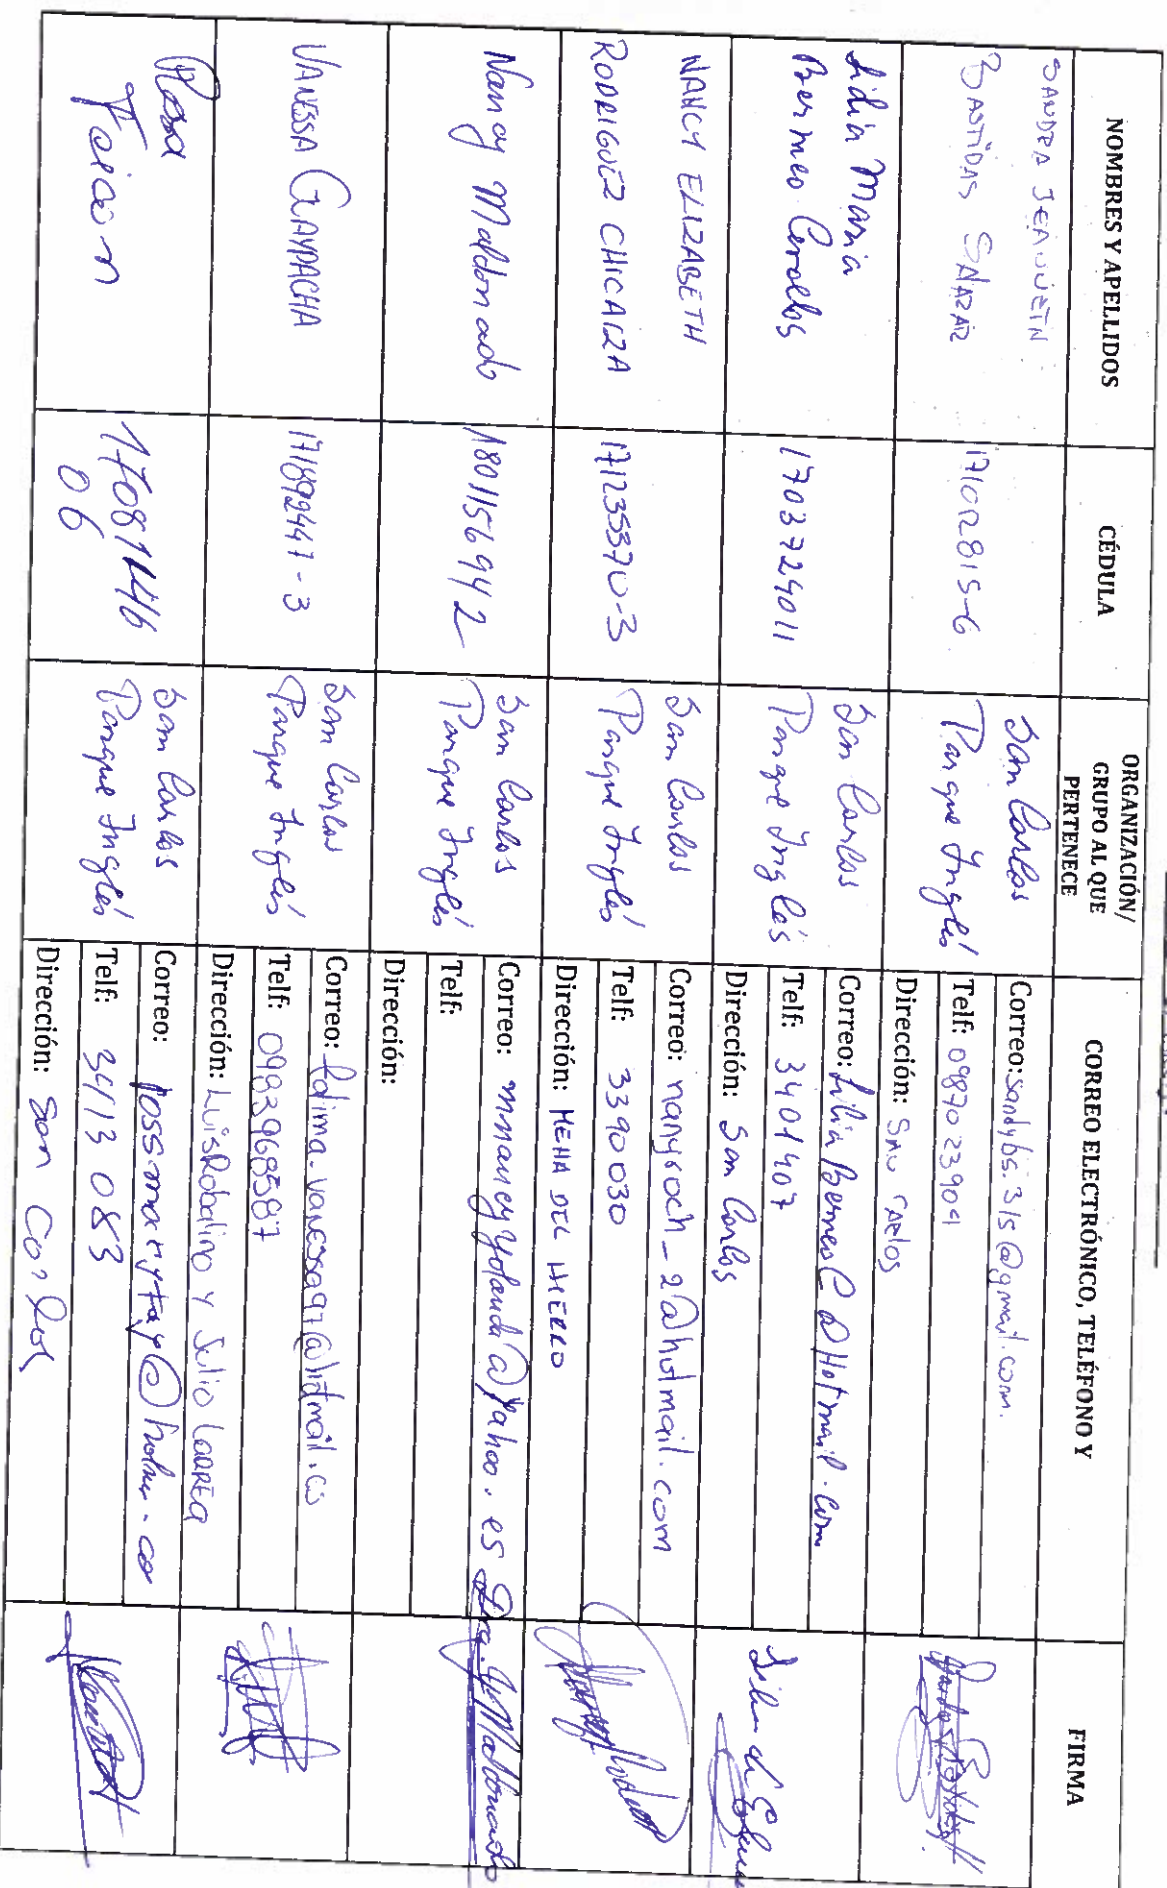 NOMBRES Y APELLIDOS
CÉDULA
ORGANIZACIÓN/
GRUPO AL QUE
PERTENECE
CORREO ELECTRÓNICO, TELÉFONO Y
FIRMA
SANDRA JEANNETH
BASTIDAS SALAZAR
171012815-6
San Carlos
Parque Inglés
Correo: sandybs.31s@gmail.com.
Telf: 0987023904
Dirección: SAN CARLOS
Lidia Maria
Bermeo Cevallos
1703729011
San Carlos
Parque Inglés
Correo: LiliaBermeoC@Hotmail.com
Telf: 3401407
Dirección: San Carlos
NANCY ELIZABETH
RODRIGUEZ CHICAIZA
171235370-3
San Carlos
Parque Inglés
Correo: nanyroch_2@hotmail.com
Telf: 3390030
Dirección: MENA DEL HIERRO
Nancy Maldonado
1801156942
San Carlos
Parque Inglés
Correo: mnancyyolanda@yahoo.es
Telf:
Dirección:
Dra. Y Maldonado
VANESSA GUAYPACHA
171892447-3
San Carlos
Parque Inglés
Correo: fatima.vanessa97@hotmail.es
Telf: 0983968587
Dirección: Luis Robalino y Julio Larrea
Rosa
1708114
06
San Carlos
Parque Inglés
Correo:
Telf: 3413 083
Dirección: San Carlos